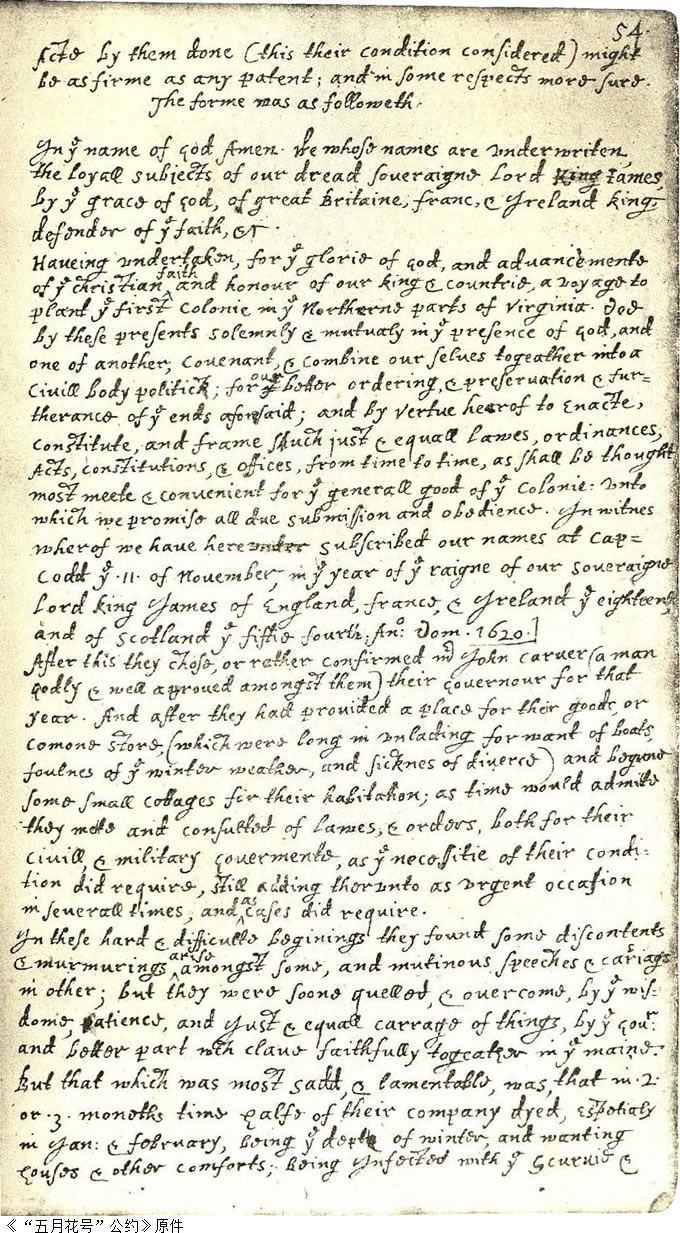 54.
Acte by them done (this their condition considered) might
be as firme as any patent; and in some respects more sure.
The forme was as followeth.
In yͤ name of god Amen. We whose names are underwriten,
the loyall subjects of our dread soveraigne Lord King James,
by yͤ grace of god, of great Britaine, franc, & Ireland king,
defender of yͤ faith, &c.
Haveing undertaken, for yͤ glorie of god, and advancemente
of yͤ christian faith and honour of our king & countrie, a voyage to
plant yͤ first colonie in yͤ Northerne parts of Virginia. Doe
by these presents solemnly & mutualy in yͤ presence of god, and
one of another, covenant, & combine our selves togeather into a
Civill body politick; for our better ordering, & preservation & fur=
therance of yͤ ends aforesaid; and by vertue hearof to Enacte,
constitute, and frame such just & equall lawes, ordinances,
Acts, constitutions, & offices, from time to time, as shall be thought
most meete & convenient for yͤ generall good of yͤ Colonie: unto
which we promise all due submission and obedience. In witnes
wherof we have hereunder subscribed our names at Cap=
Codd yͤ .11. of November, in yͤ year of yͤ raigne of our soveraigne
Lord king James of England, france, & Ireland yͤ eighteenth
and of Scotland yͤ fiftie fourth. Anͦ: Dom. 1620.]
After this they chose, or rather confirmed mͬ John carver (a man
godly & well approved amongst them) their governour for that
year. And after they had provided a place for their goods, or
comone store, (which were long in unlading for want of boats,
foulnes of yͤ winter weather, and sicknes of diverce) and begune
some small cottages for their habitation; as time would admitte
they mette and consulted of lawes, & orders, both for their
civill, & military govermente, as yͤ necessitie of their condi=
tion did require, still adding therunto as urgent occasion
in severall times, and as cases did require.
In these hard & difficulte beginings they found some discontents
& murmurings arise amongst some, and mutinous speeches & cariags
in other; but they were soone quelled, & overcome, by yͤ wis=
dome, patience, and just & equall carrage of things, by yͤ Govͬ.
and better part wch clave faithfully togeather in yͤ maine.
But that which was most sadd, & lamentable, was, that in .2.
or .3. moneths time halfe of their company dyed, espetialy
in Jan: & february, being yͤ depth of winter, and wanting
houses & other comforts; being Infected with yͤ Scurvie &
《“五月花号”公约》原件